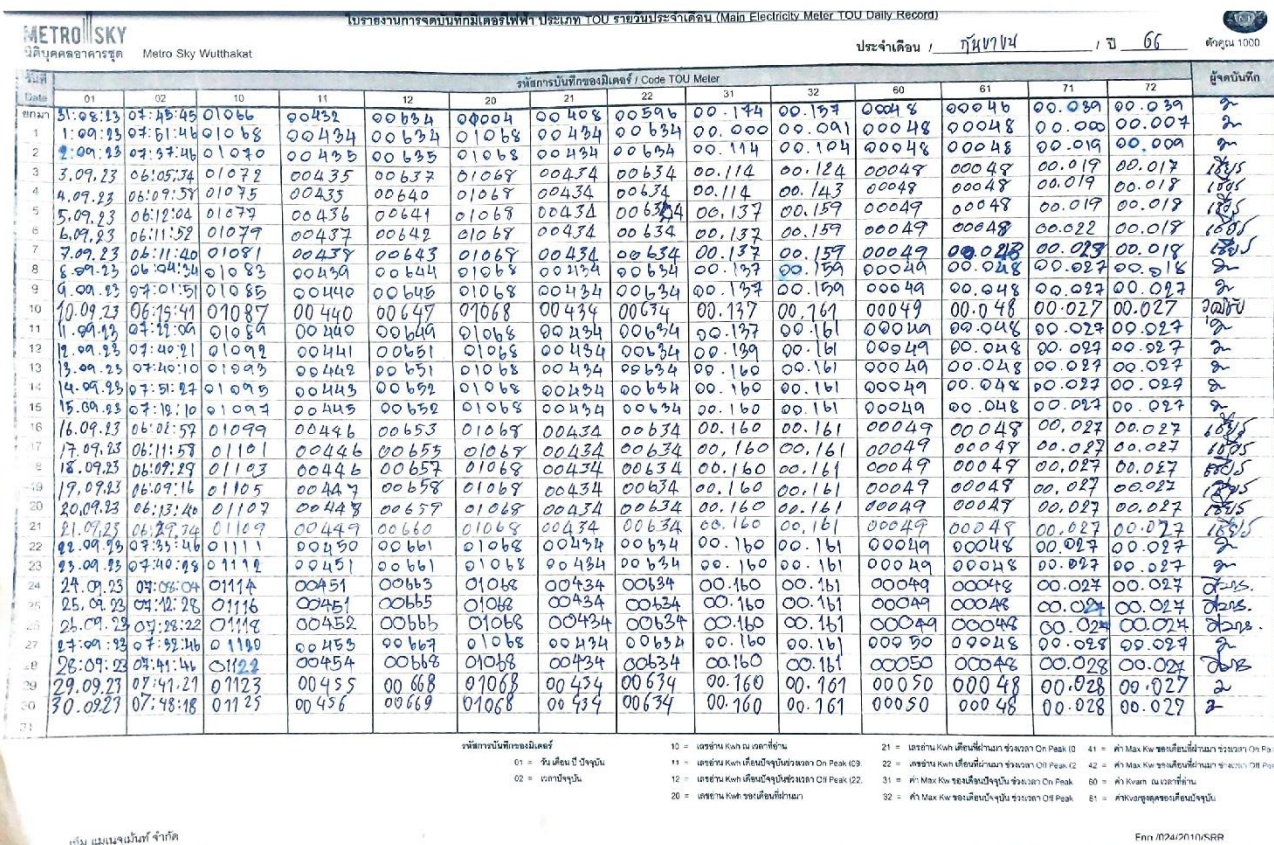 ใบรายงานการจดบันทึกมิเตอร์ไฟฟ้า ประเภท TOU รายวันประจำเดือน (Main Electricity Meter TOU Daily Record)
METRO SKY
นิติบุคคลอาคารชุด Metro Sky Wutthakat
ประจำเดือน / กันยายน / ปี 66 ตัวคูณ 1000
วันที่ Date รหัสการบันทึกของมิเตอร์ / Code TOU Meter ผู้จดบันทึก
01 02 10 11 12 20 21 22 31 32 60 61 71 72
ยกมา 31:08:23 07:45:45 01066 00432 00634 00004 00408 00596 00.174 00.157 00048 00046 00.039 00.039
1 1:09:23 07:51:46 01068 00434 00634 01068 00434 00634 00.000 00.091 00048 00048 00.000 00.007
2 2:09:23 07:37:46 01070 00435 00635 01068 00434 00634 00.114 00.104 00048 00048 00.019 00.009
3 3.09.23 06:05:34 01072 00435 00637 01068 00434 00634 00.114 00.124 00048 00048 00.019 00.017
4 4.09.23 06:09:58 01075 00435 00640 01068 00434 00634 00.114 00.143 00048 00048 00.019 00.018
5 5.09.23 06:12:04 01077 00436 00641 01068 00434 00634 00.137 00.159 00049 00048 00.019 00.018
6 6.09.23 06:11:52 01079 00437 00642 01068 00434 00634 00.137 00.159 00049 00048 00.022 00.018
7 7.09.23 06:11:40 01081 00438 00643 01068 00434 00634 00.137 00.159 00049 00.028 00.018
8 8.09.23 06:04:34 01083 00439 00644 01068 00434 00634 00.137 00.159 00049 00.048 00.027 00.018
9 9.09.23 07:01:51 01085 00440 00645 01068 00434 00634 00.137 00.159 00049 00.048 00.027 00.027
10 10.09.23 06:15:41 01087 00440 00647 01068 00434 00634 00.137 00.161 00049 00.048 00.027 00.027
11 11.09.23 07:12:09 01089 00440 00649 01068 00434 00634 00.137 00.161 00049 00.048 00.027 00.027
12 12.09.23 07:40:21 01092 00441 00651 01068 00434 00634 00.139 00.161 00049 00.048 00.027 00.027
13 13.09.23 07:40:10 01093 00442 00651 01068 00434 00634 00.160 00.161 00049 00.048 00.027 00.027
14 14.09.23 07:51:27 01095 00443 00652 01068 00434 00634 00.160 00.161 00049 00.048 00.027 00.027
15 15.09.23 07:12:10 01097 00445 00652 01068 00434 00634 00.160 00.161 00049 00.048 00.027 00.027
16 16.09.23 06:02:57 01099 00446 00653 01068 00434 00634 00.160 00.161 00049 00048 00.027 00.027
17 17.09.23 06:11:58 01101 00446 00655 01068 00434 00634 00.160 00.161 00049 00048 00.027 00.027
18.09.23 06:09:29 01103 00446 00657 01068 00434 00634 00.160 00.161 00049 00048 00.027 00.027
19 19.09.23 06:09:16 01105 00447 00658 01068 00434 00634 00.160 00.161 00049 00048 00.027 00.027
20 20.09.23 06:13:40 01107 00448 00659 01068 00434 00634 00.160 00.161 00049 00048 00.027 00.027
21 21.09.23 06:29:34 01109 00449 00660 01068 00434 00634 00.160 00.161 00049 00048 00.027 00.027
22 22.09.23 07:35:46 01111 00450 00661 01068 00434 00634 00.160 00.161 00049 00048 00.027 00.027
23 23.09.23 07:40:28 01112 00451 00661 01068 00434 00634 00.160 00.161 00049 00048 00.027 00.027
24 24.09.23 07:08:04 01114 00451 00663 01068 00434 00634 00.160 00.161 00049 00048 00.027 00.027
25 25.09.23 07:12:28 01116 00451 00665 01068 00434 00634 00.160 00.161 00049 00048 00.027 00.027
26 26.09.23 07:28:22 01118 00452 00665 01068 00434 00634 00.160 00.161 00049 00048 00.027 00.027
27 27:09:23 07:52:46 01120 00453 00667 01068 00434 00634 00.160 00.161 00050 00048 00.028 00.027
28 28:09:23 07:41:46 01122 00454 00668 01068 00434 00634 00.160 00.161 00050 00048 00.028 00.027
29 29.09.23 07:41:21 01123 00455 00668 01068 00434 00634 00.160 00.161 00050 00048 00.028 00.027
30 30.09.23 07:48:18 01125 00456 00669 01068 00434 00634 00.160 00.161 00050 00048 00.028 00.027
31
รหัสการบันทึกของมิเตอร์ 10 = เลขอ่าน Kwh ณ เวลาที่อ่าน 21 = เลขอ่าน Kwh เดือนที่ผ่านมา ช่วงเวลา On Peak (0 41 = ค่า Max Kw ของเดือนที่ผ่านมา ช่วงเวลา On Pe
01 = วัน เดือน ปี ปัจจุบัน 11 = เลขอ่าน Kwh เดือนปัจจุบันช่วงเวลา On Peak (09. 22 = เลขอ่าน Kwh เดือนที่ผ่านมา ช่วงเวลา Off Peak (2 42 = ค่า Max Kw ของเดือนที่ผ่านมา ช่วงเวลา Off Pe
02 = เวลาปัจจุบัน 12 = เลขอ่าน Kwh เดือนปัจจุบันช่วงเวลา Off Peak (22. 31 = ค่า Max Kw ของเดือนปัจจุบัน ช่วงเวลา On Peak 60 = ค่า Kvarh ณ เวลาที่อ่าน
20 = เลขอ่าน Kwh ของเดือนที่ผ่านมา 32 = ค่า Max Kw ของเดือนปัจจุบัน ช่วงเวลา Off Peak 61 = ค่าKvarสูงสุดของเดือนปัจจุบัน
แมเนจเม้นท์ จำกัด Eng /024/2010/SRR